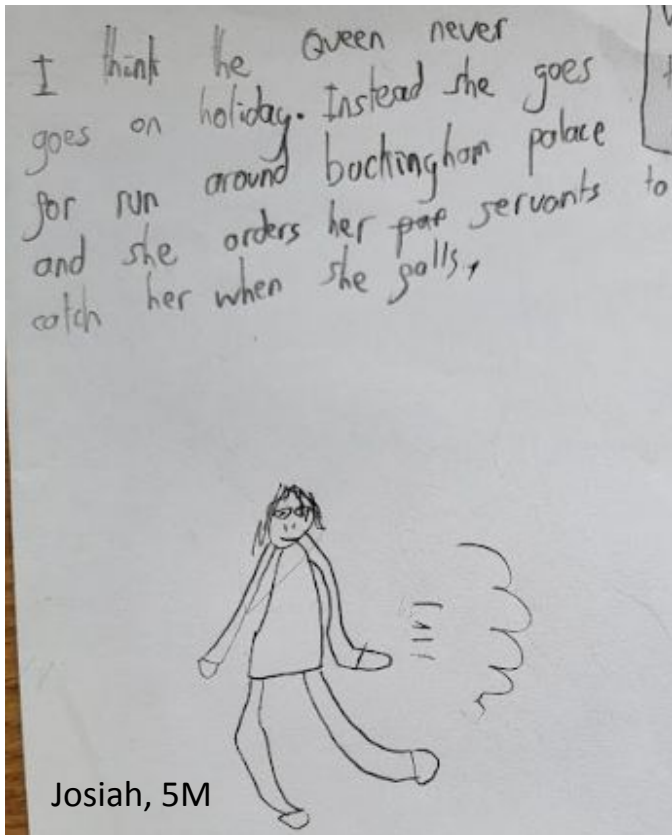 I think the Queen never
goes on holiday. Instead she goes
for run around buckingham palace
and she orders her servants to
catch her when she falls,
Josiah, 5M